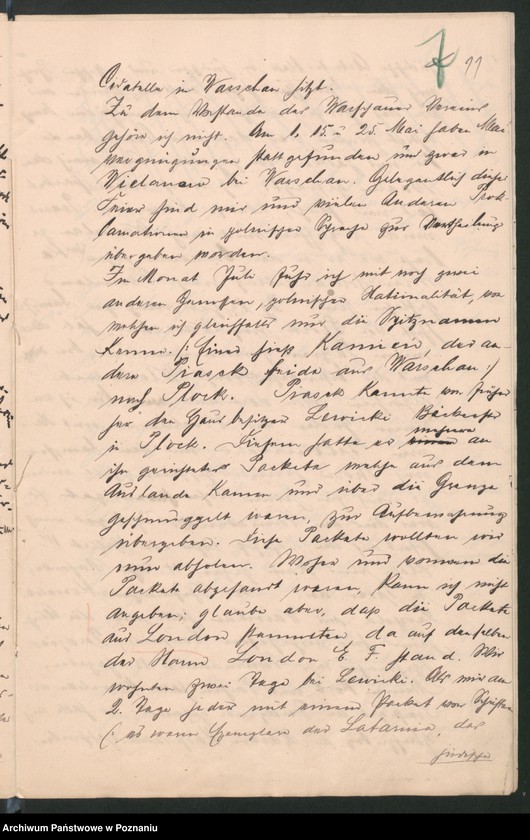 7 11
Citatelle in Warschau sitzt.
Zu dem Vorstande des Warschauer Vereins
gehöre ich nicht. Am 1. 15. u 25. Mai haben Mai
vergnügungen stattgefunden und zwar in
bei Warschau. Gelegentlich dieser
Feier sind mir und vielen Anderen Prok-
lamationen in polnischer Sprache zur Vertheilung
übergeben worden.
Im Monat Juli fuhr ich mit noch zwei
anderen Genossen, polnischer Nationalität, von
welchen ich gleichfalls nur die Spitznamen
kenne. /: Einer hieß Kamien, der an-
dere Piasek beide aus Warschau :/
nach Plock. Piasek kannte von früher
her den Hausbesitzer Lewicki
in Plock. Diesem hatte er mehrere an
ihn gerichtete Packete welche aus dem
Auslande kamen und über die Grenze
geschmuggelt waren, zur Aufbewahrung
übergeben. Diese Packete wollten wir
nun abholen. Woher und von wem die
Packete abgesandt waren, kann ich nicht
angeben; glaube aber, daß die Packete
aus London stammten da auf denselben
der Name London E. F. stand. Wir
wohnten zwei Tage bei Lewicki. Als wir am
2. Tage jeder mit einem Packet von Schriften
(: es waren Exemplare der Latarnia, der
Archiwum Państwowe w Poznaniu